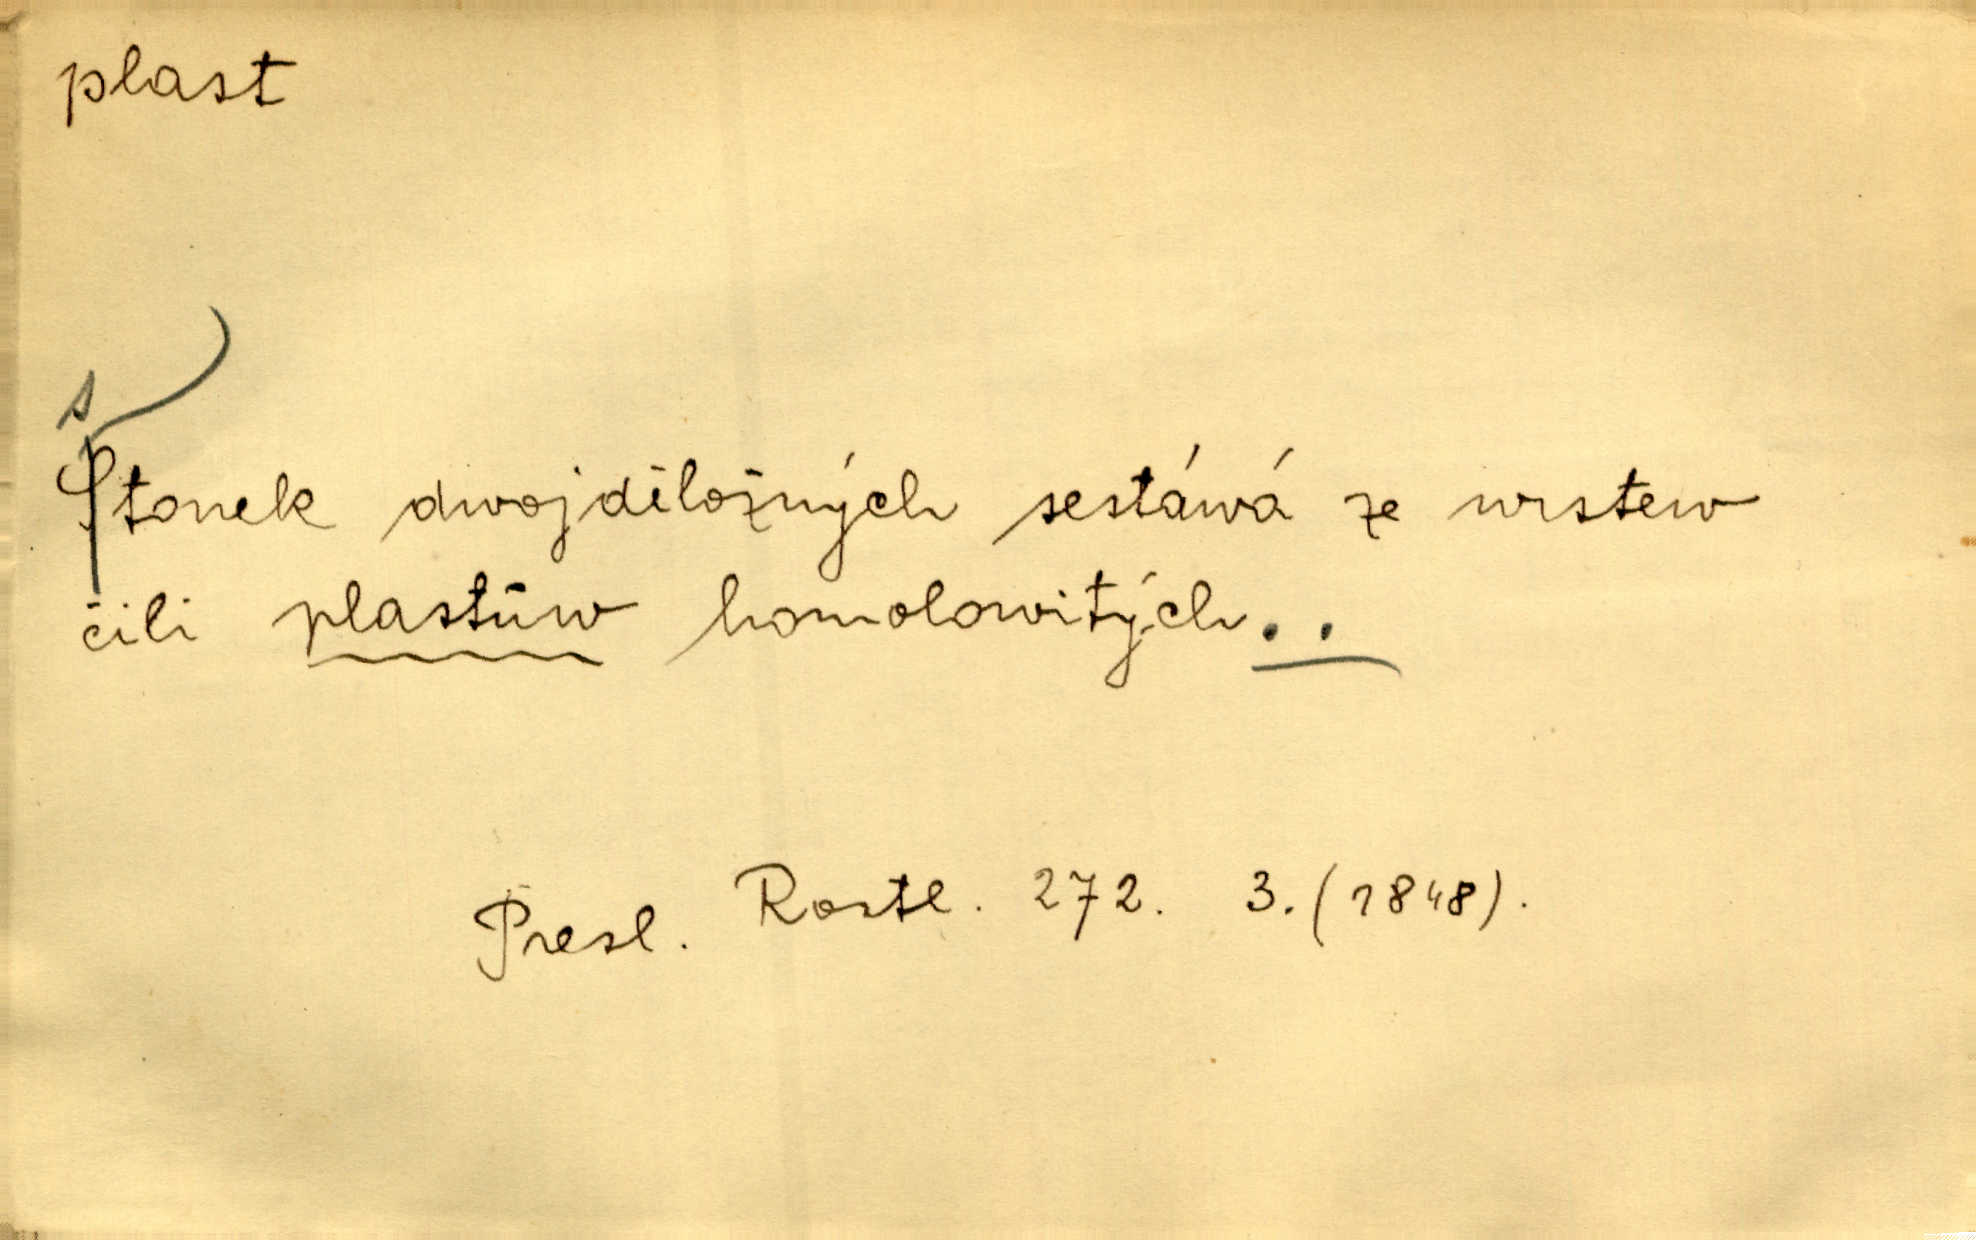 plast
s
Štonek dwojděložných sestáwá ze wrstew
čili plastůw homolowitých..
Presl. Rostl. 272. 3. (1848).